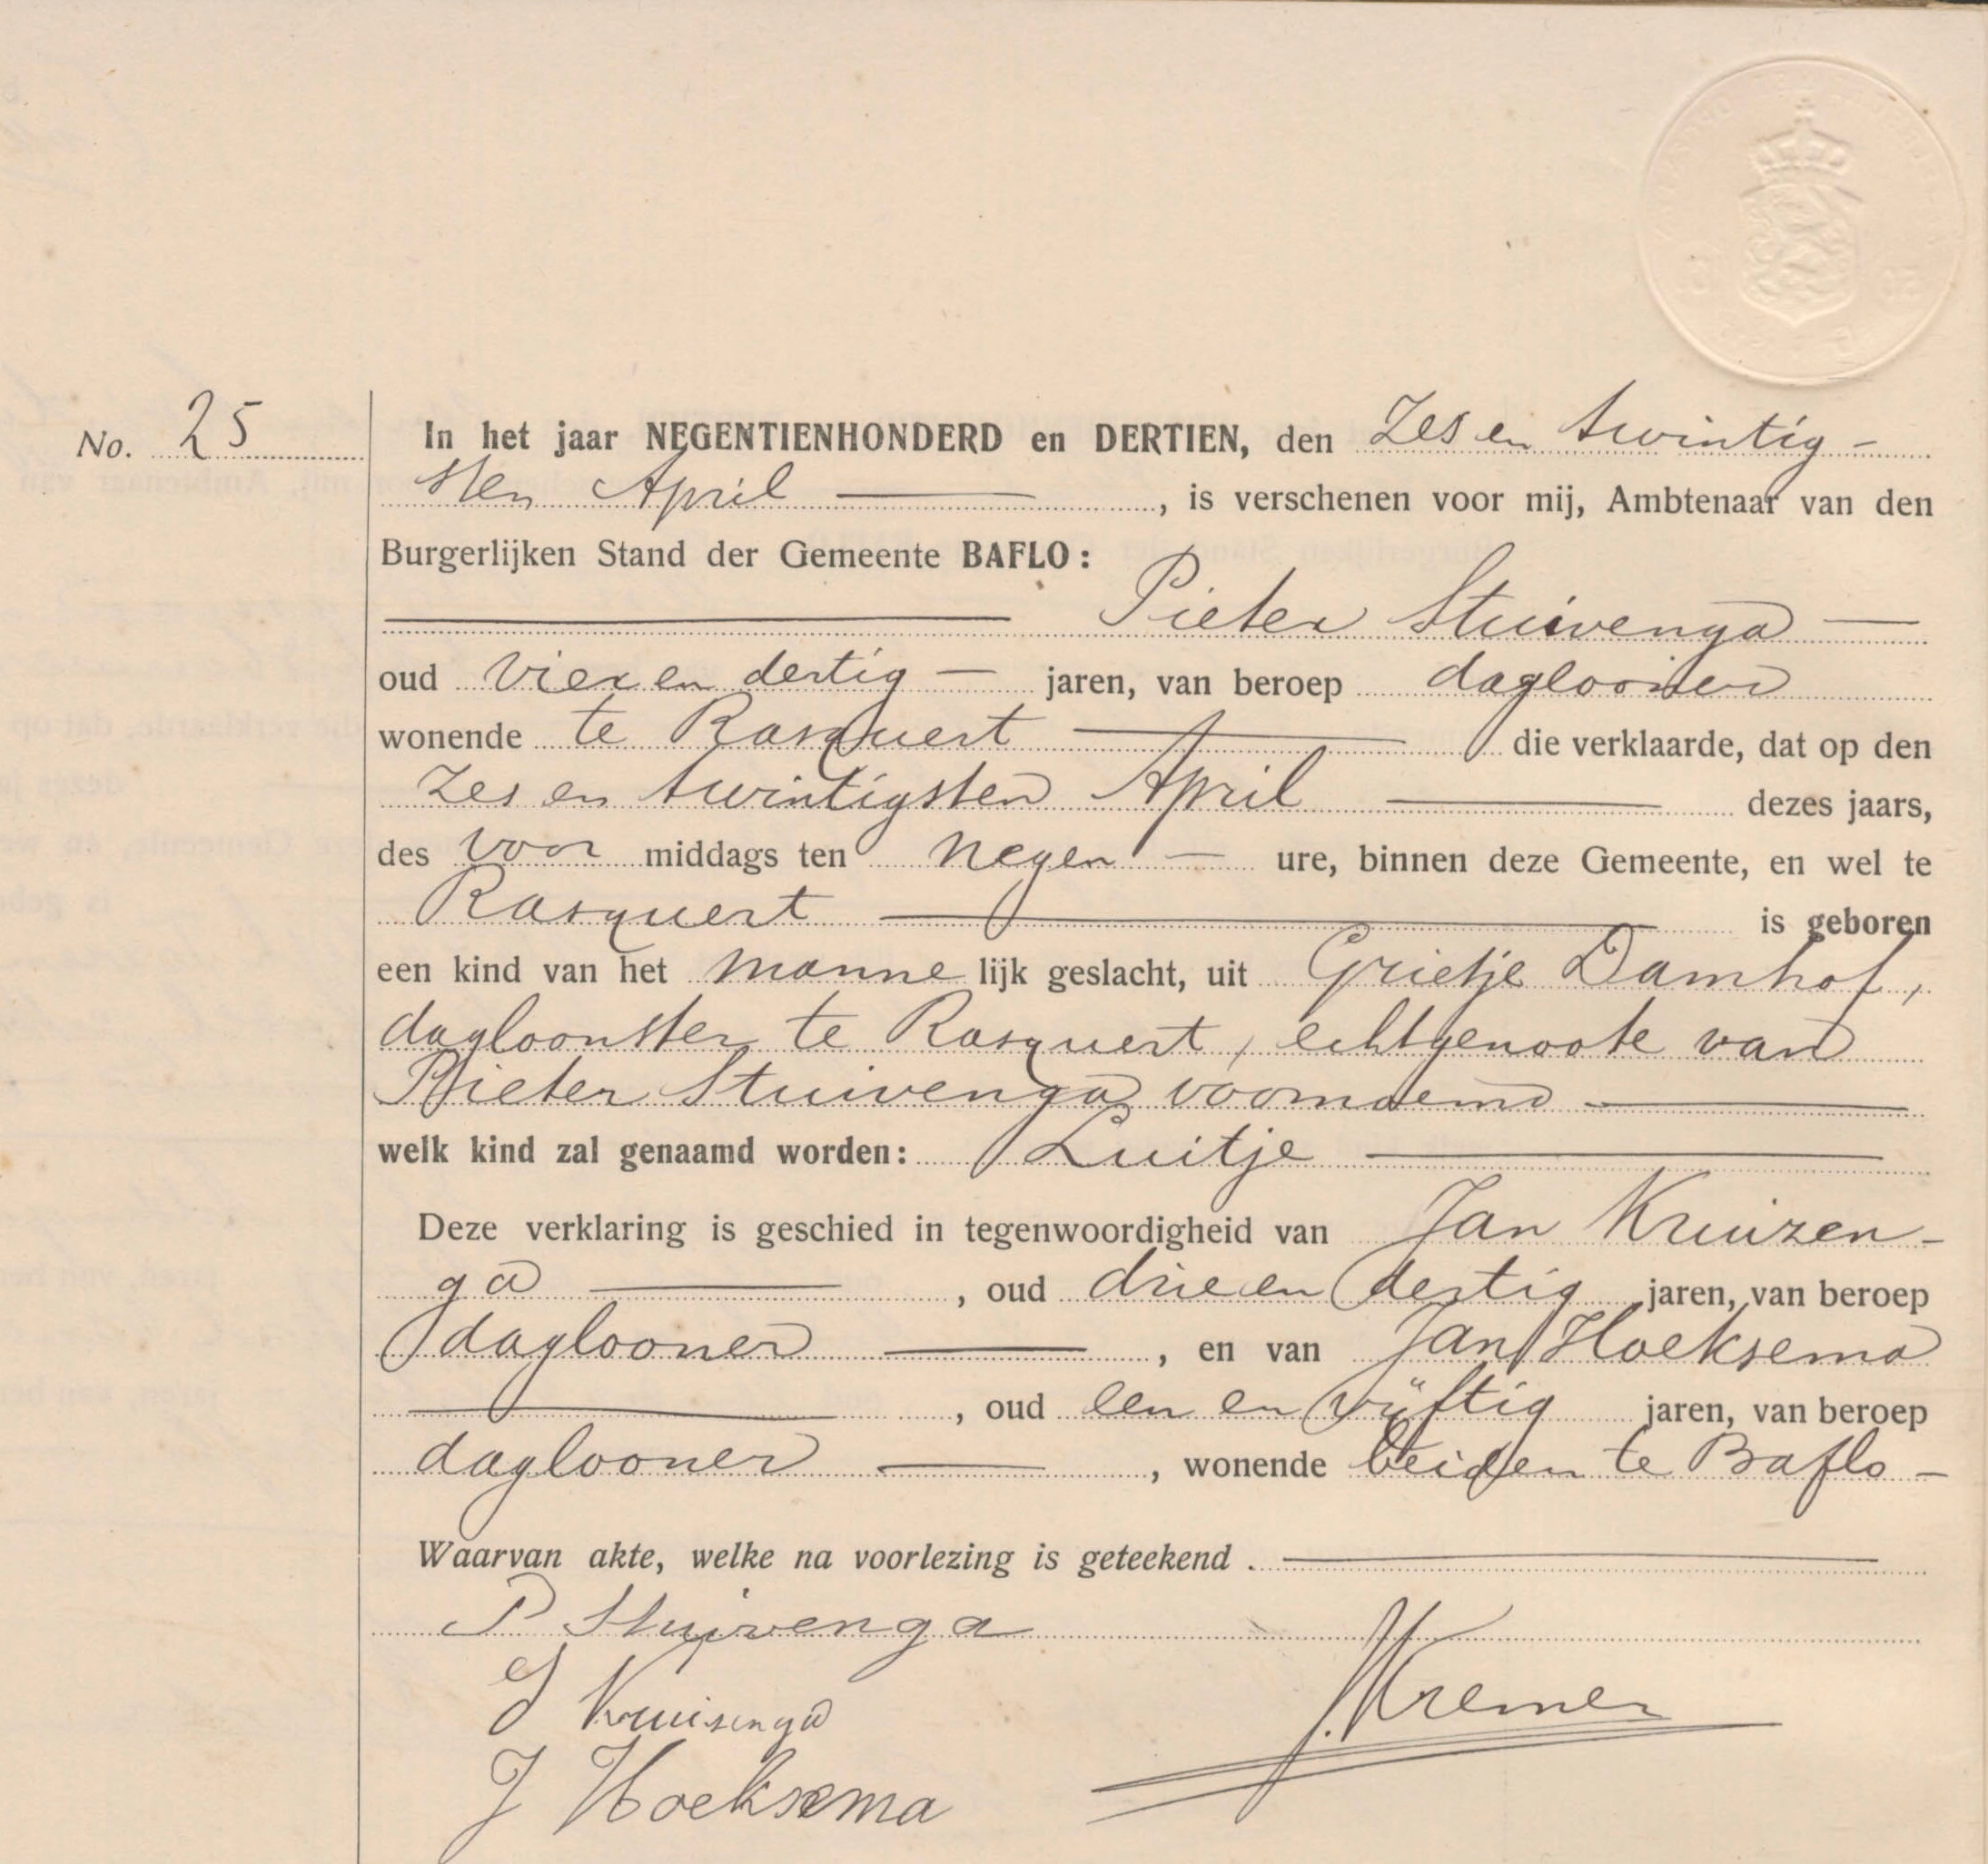 No. 25
In het jaar NEGENTIENHONDERD en DERTIEN, den Zes en twintig-
sten April, is verschenen voor mij, Ambtenaar van den
Burgerlijken Stand der Gemeente BAFLO:
Pieter Stuivenga
oud vier en dertig jaren, van beroep daglooner
wonende te Rasquert die verklaarde, dat op den
Zes en twintigsten April dezes jaars,
des voor middags ten negen ure, binnen deze Gemeente, en wel te
Rasquert is geboren
een kind van het manne lijk geslacht, uit Grietje Damhof,
dagloonster te Rasquert, echtgenoote van
Pieter Stuivenga voornoemd
welk kind zal genaamd worden: Luitje
Deze verklaring is geschied in tegenwoordigheid van Jan Kruizen-
ga, oud drie en dertig jaren, van beroep
daglooner, en van Jan Hoeksema
, oud een en vijftig jaren, van beroep
daglooner, wonende beiden te Baflo
Waarvan akte, welke na voorlezing is geteekend.
P Stuivenga
J Kruisenga
J Kremer
J Hoeksema